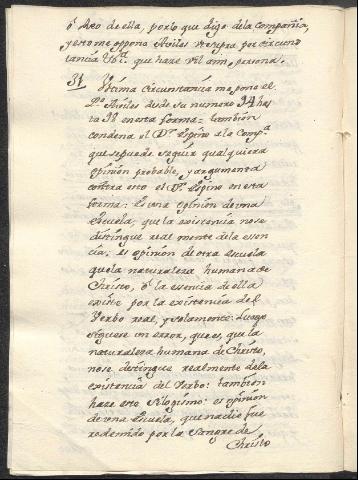 ô Reo de ella, porlo que dijo dela Compañia,
y esto me oppone Aviles ubi supra, por circuns
tancia Ubi.ª que haze vil àmi persona.
31 Ultima circunstancia me pone el
P.e Aviles desde su numero 94 has
ta 98 en esta forma: tambien
condena el D.r Espino a la Comp.ª
que se puede seguir qualquiera
opinion probable, y argumenta
contra esto el D.r Espino en esta
forma: Es una opinion de una
Escuela, que la existencia no se
distingue realmente de la esen
cia; es opinion de otra escuela
que la naturaleza humana de
Christo, ô la esencia de ella
existe por la existencia del
Verbo real, y solamente: Luego
siguese un error, que es, que la
naturaleza humana de Christo,
nose destingue realmente dela
existencia del Verbo: tambien
haze este silogismo: es opinion
de una Escuela, que nadie fue
redemido por la Sangre de
Christo